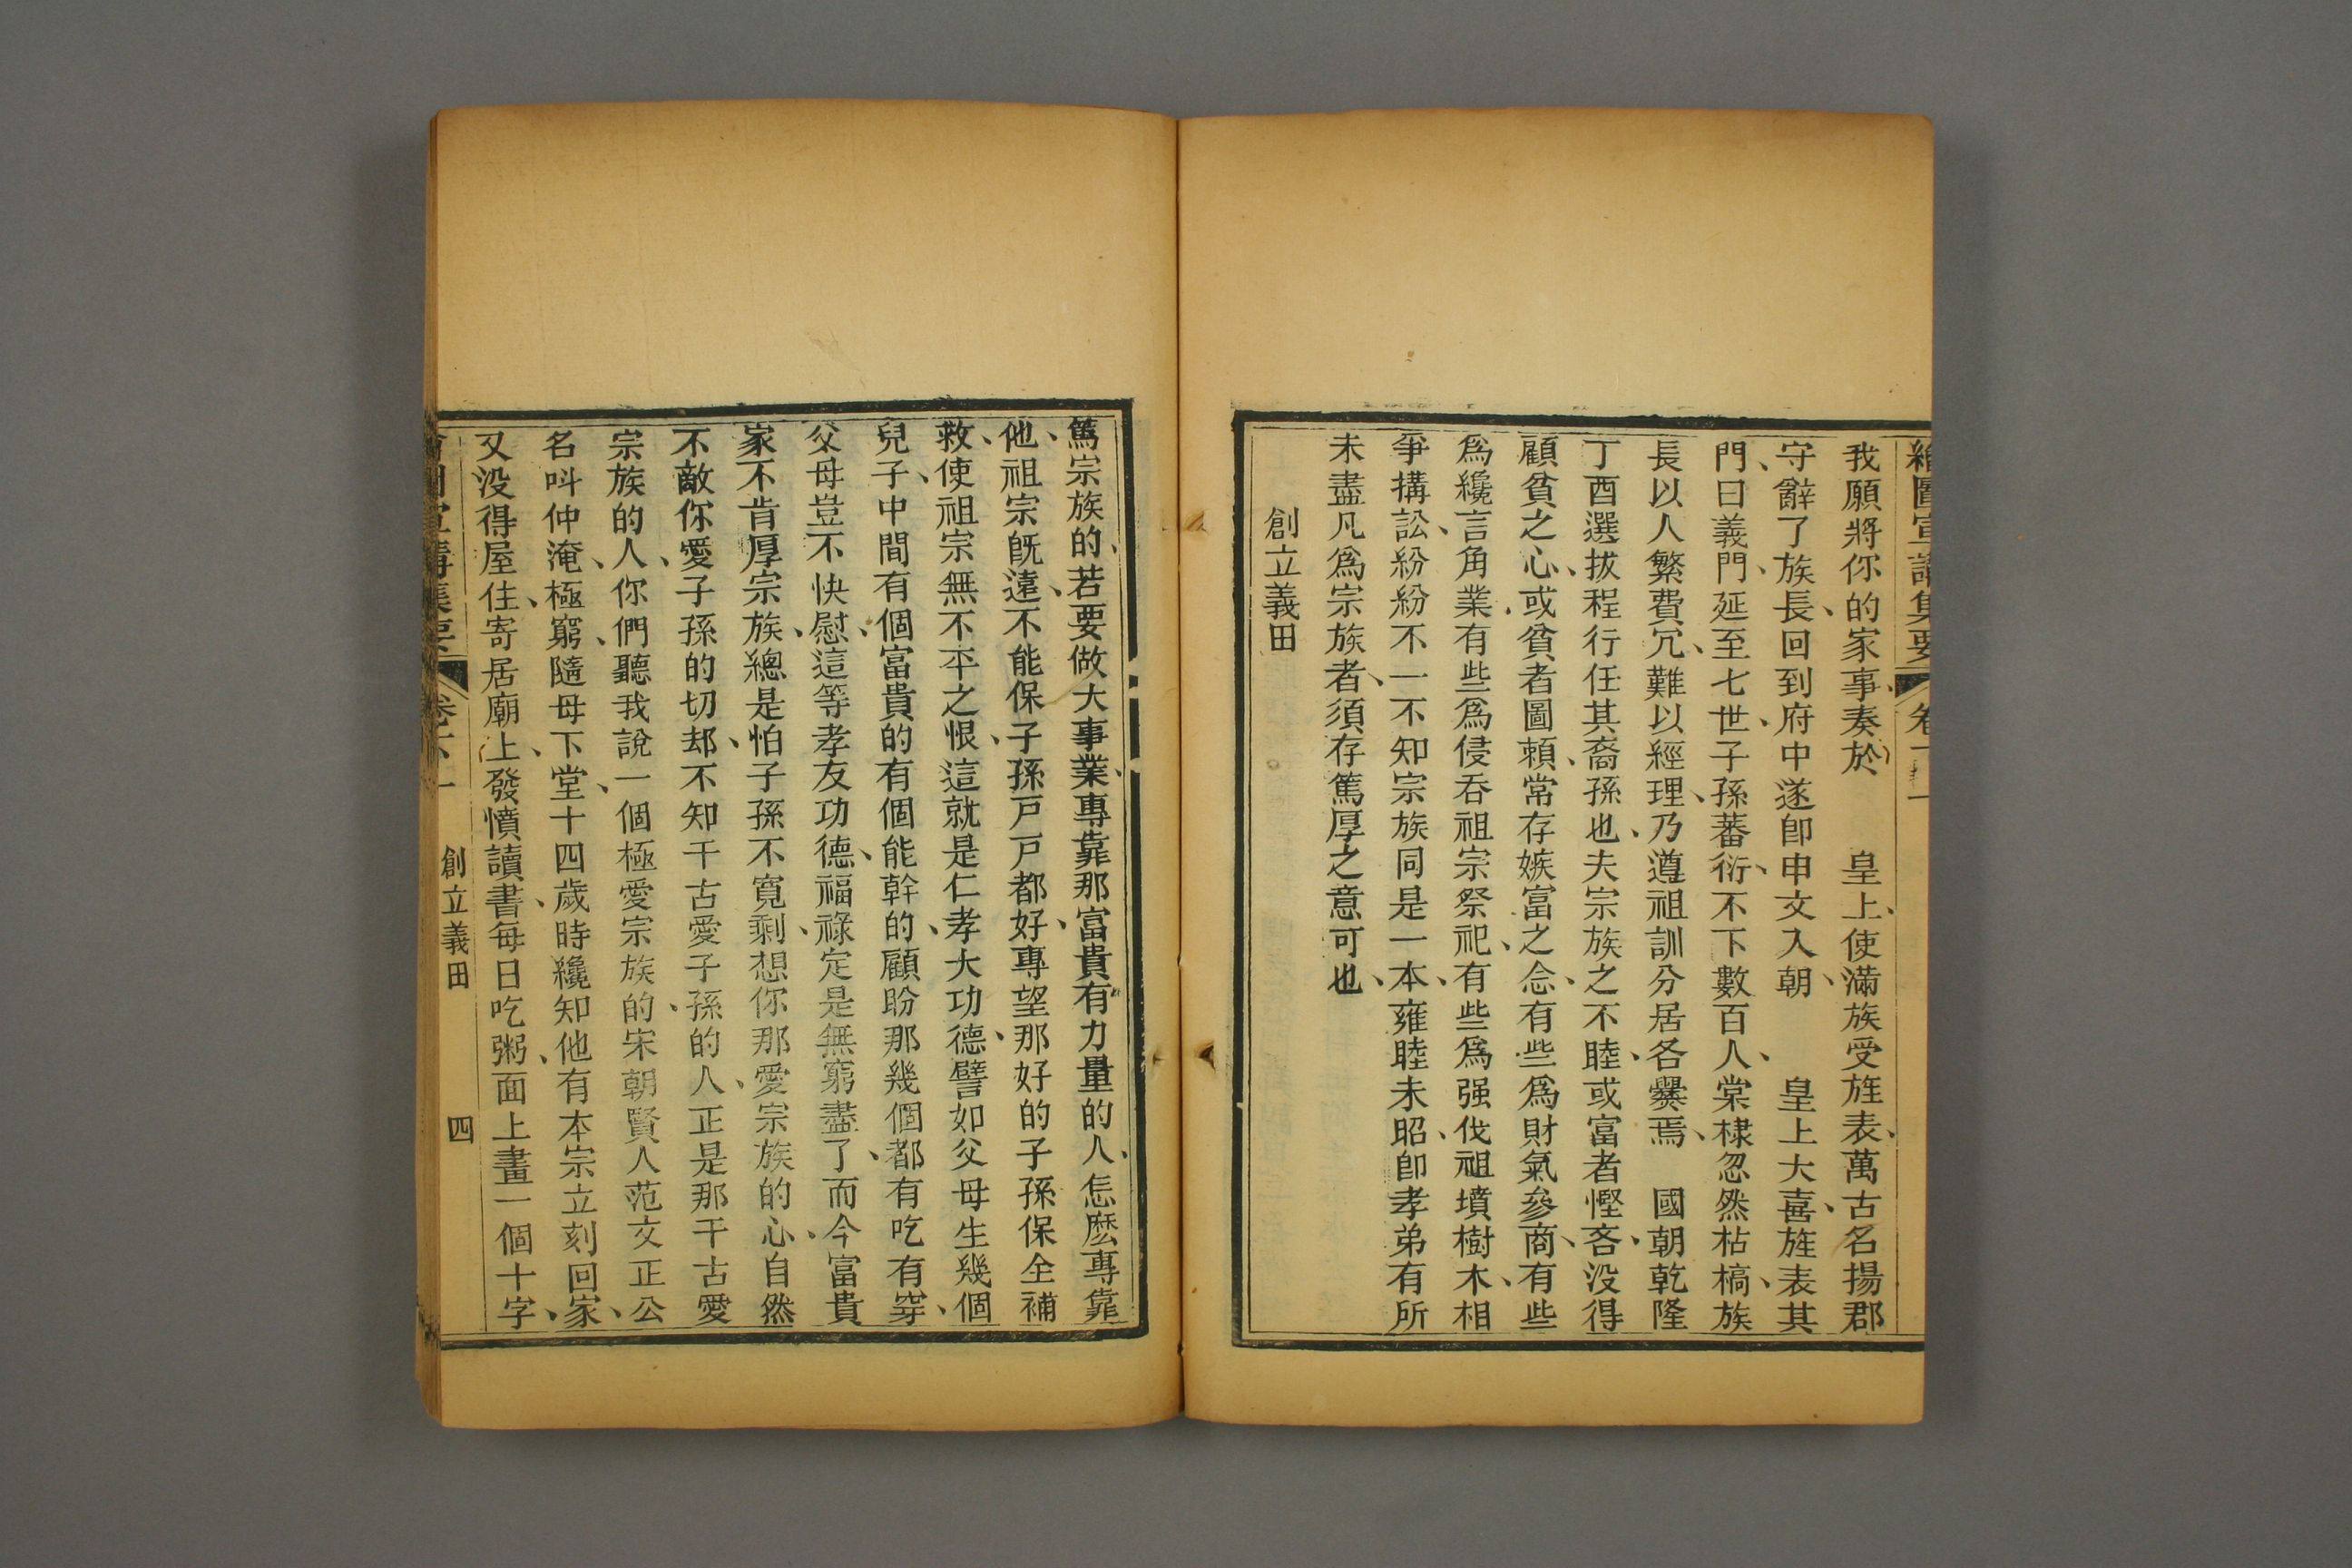 繪圖宣講集要
我願將你的家事、奏於　皇上、使滿族受旌表、萬古名揚郡
守辭了族長、回到府中遂卽申文入朝、　皇上大喜、旌表其
門、曰義門、延至七世、子孫蕃衍、不下數百人、棠棣忽然枯槁、族
長以人繁費冗、難以經理、乃遵祖訓分居各爨焉、　國朝乾隆
丁酉選拔程行任其裔孫也、夫宗族之不睦、或富者慳吝、没得
顧貧之心、或貧者圖頼、常存嫉富之念、有些爲財氣參商、有些
爲纔言角業、有些爲侵吞祖宗祭祀、有些爲强伐祖墳樹木、相
爭搆訟、紛紛不一不知宗族同是一本、雍睦未昭、卽孝弟有所
未盡凡爲宗族者、須存篤厚之意可也、
創立義田
篤宗族的、若要做大事業、專靠那富貴有力量的人、怎麽專靠
他、祖宗旣遠、不能保子孫戸戸都好、專望那好的子孫保全補
救、使祖宗無不平之恨、這就是仁孝大功德、譬如父母生幾個
兒子、中間有個富貴的有個能幹的、顧盼那幾個都有吃有穿、
父母豈不快慰、這等孝友功德、福祿定是無窮盡了、而今富貴
家不肯厚宗族、總是怕子孫不寬剩、想你那愛宗族的心、自然
不敵你愛子孫的切、却不知千古愛子孫的人、正是那千古愛
宗族的人、你們聽我說一個極愛宗族的、宋朝賢人范文正公
名呌仲淹、極窮、隨母下堂、十四歲時纔知他有本宗立刻回家、
又没得屋住、寄居廟上、發憤讀書、每日吃粥、面上畫一個十字、
創立義田
四